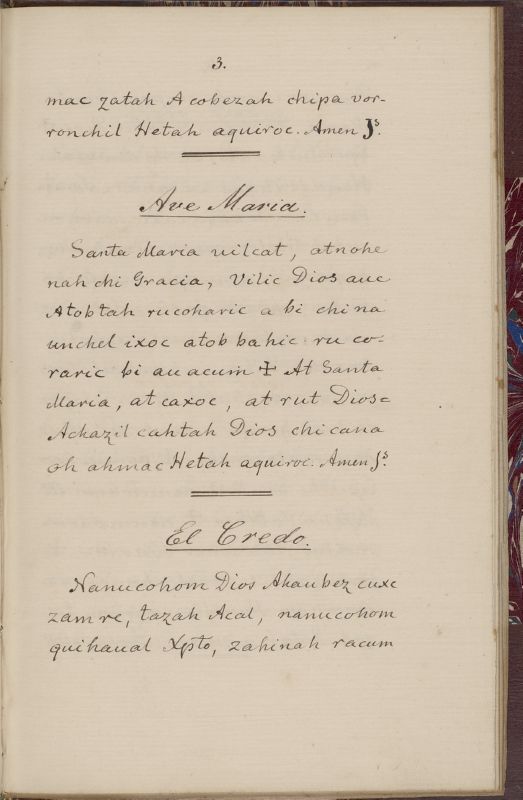 3.
mac zatah Acobezah chipa vor-
ronchil Hetah aquiroc. Amen Js.
Ave Maria.
Santa Maria uilcat, atnohe
nah chi Gracia, Vilic Dios auc
Atobtah rucoharic a bi chi na
unchel ixoc atob bahic ru co-
raric bi au acum ‡ At Santa
Maria, at caxoc, at rut Dios=
Achazil cahtah Dios chi cana
oh ahmac Hetah aquiroc. Amen Js.
El Credo.
Nanucohom Dios Ahaubez cuxc
zam re, tazah Acal, nanucohom
quihaual Xpto, zahinah racum